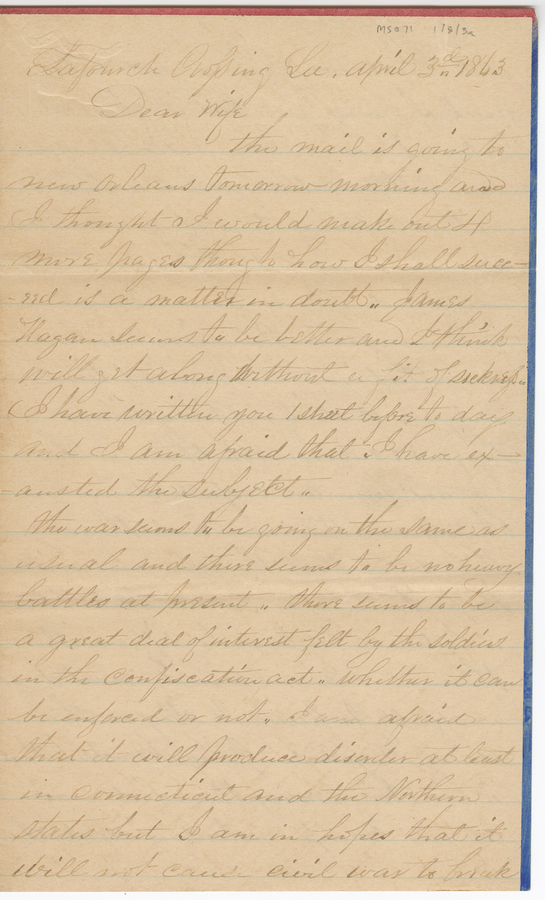 MS071 1/8/3a
Lafourch Crossing La. April 3d 1863
Dear Wife
the mail is going to
new orleans tomorrow morning and
I thought I would make out 4
more pages though how I shall succ-
-eed is a matter in doubt,, James
Hagan seems to be better and I think
will get along without a fit of sickness,,
I have written you 1 sheet before to day
and I am afraid that I have ex-
-austed the subject,,
the war seems to be going on the same as
usual and there seems to be no heavy
battles at present,, there seems to be
a great deal of interest felt by the soldiers
in the confiscation act,, whether it can
be enforced or not,, I am afraid
that it will produce disorder at least
in connecticut and the Northern
states but I am in hopes that it
will not cause civil war to break